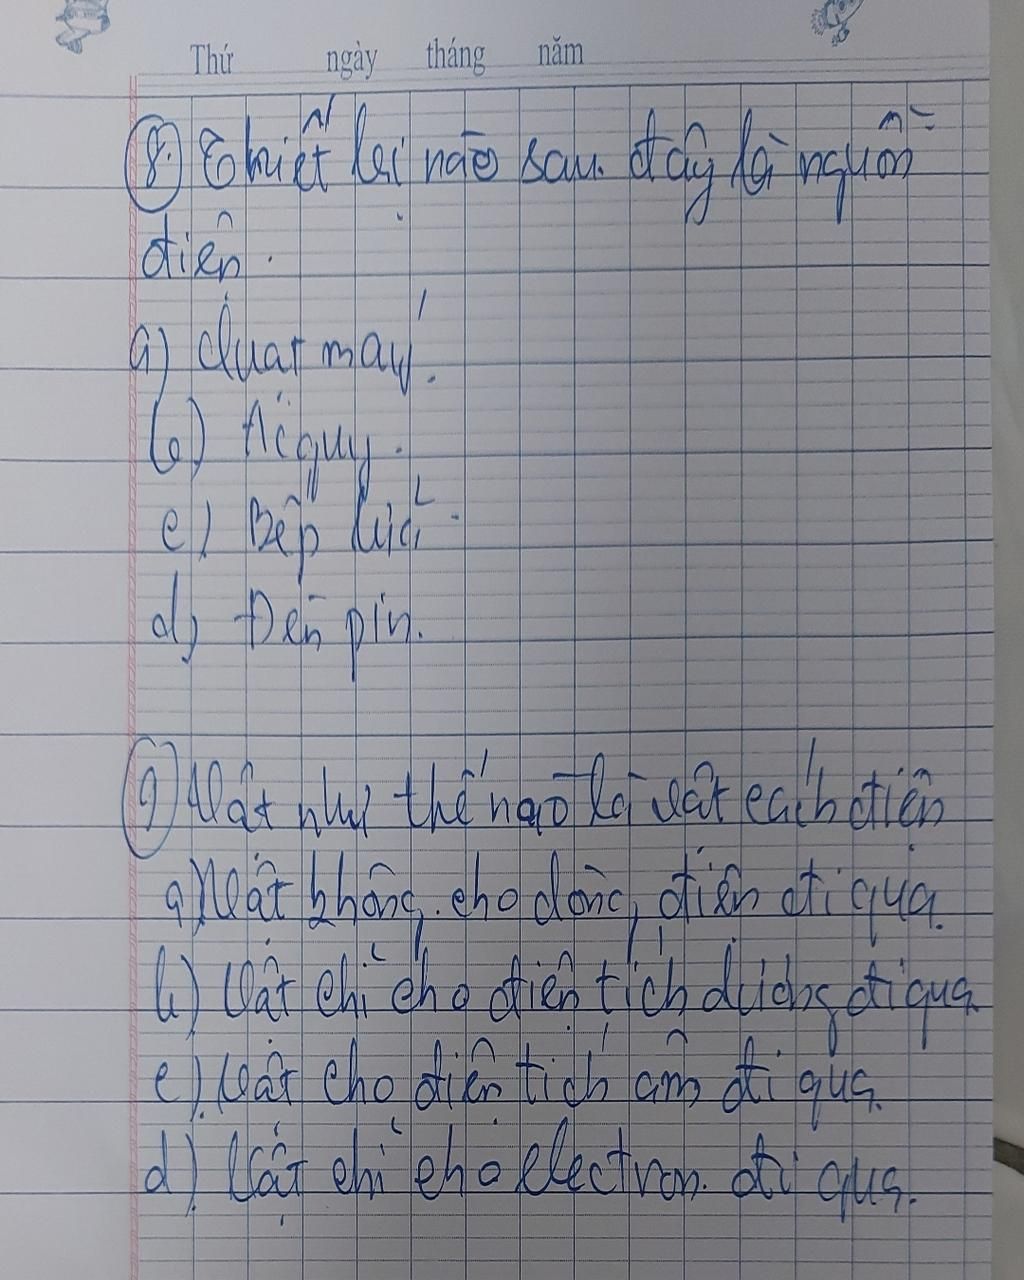 Thứ ngày tháng năm
8. Thiết bị nào sau đây là nguồn
điện.
a) Quạt máy.
b) Ắc quy.
c) Bếp lửa.
d) Đèn pin.
9) Vật như thế nào là vật cách điện
a) Vật không cho dòng điện đi qua.
b) Vật chỉ cho điện tích dương đi qua.
c) Vật cho điện tích âm đi qua.
d) Vật chỉ cho electron đi qua.